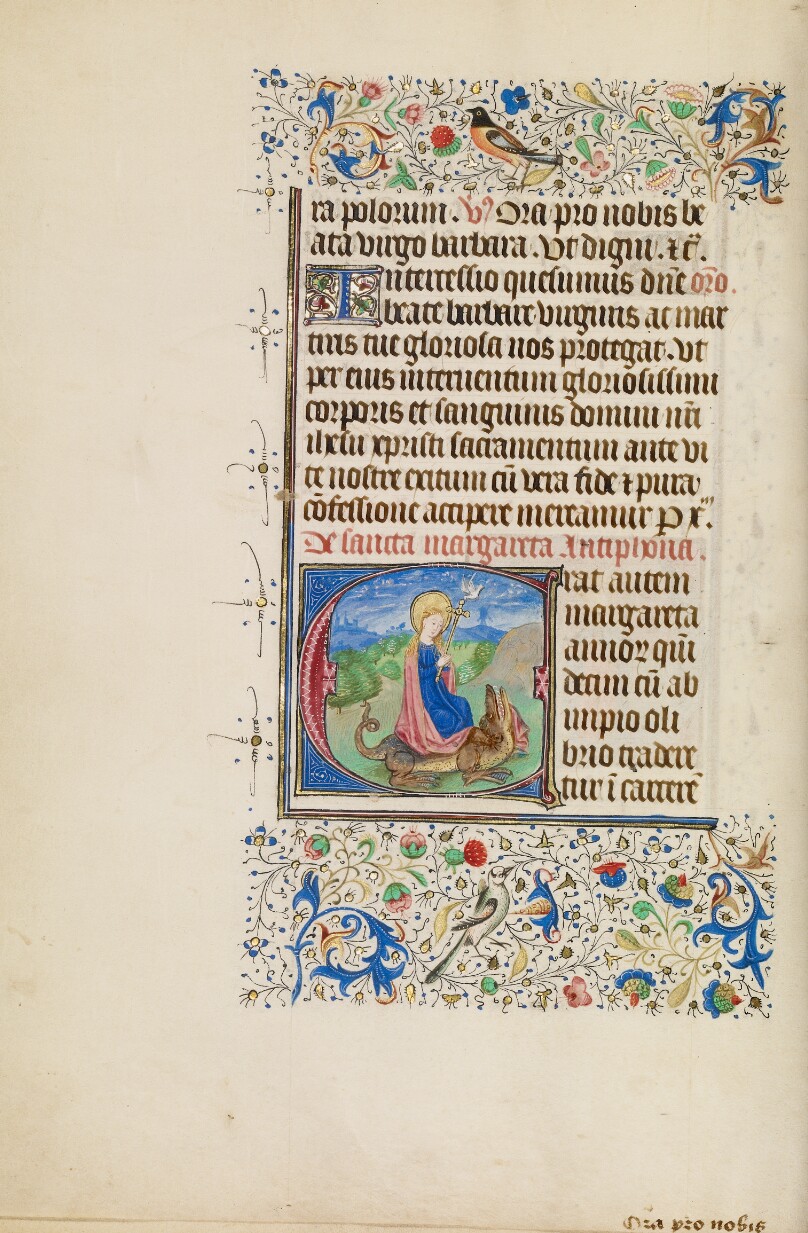 ra polorum. V̕ Ora pro nobis be
ata virgo barbara. Vt digni. ⁊ c̄.
Intercessio quesumus dn̄e or̄o.
beate barbare virginis ac mar
tiris tue gloriosa nos protegat. vt
per eius interuentum gloriosissimi
corporis et sanguinis domini nr̄i
ihesu xpristi sacramentum ante vi
te nostre exitum cū vera fide ⁊ pura
cōfessione accipere mereamur P xᵐ.
De sancta margareta Antiphona.
Erat autem
margareta
annoꝝ quī
decim cū ab
impio oli
brio tradere
tur ī carcerē
Ora pro nobis